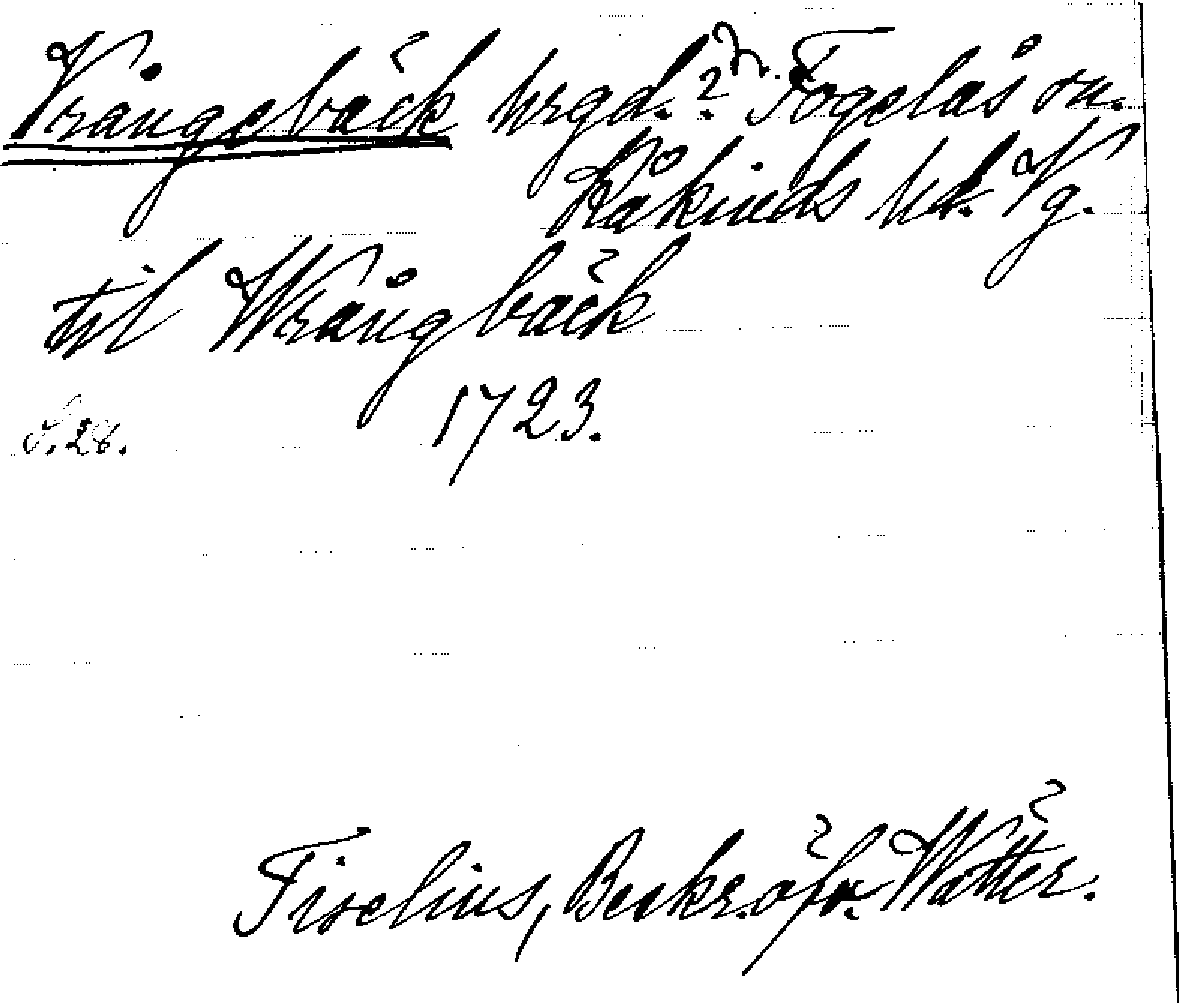 Vrångebäck hrgd.? N. Fogelås sn.
Kåkinds hd. Vg.
til Wrångbäck
S. 28. 1723.
Tiselius, Beskr. öfv. Wätter.